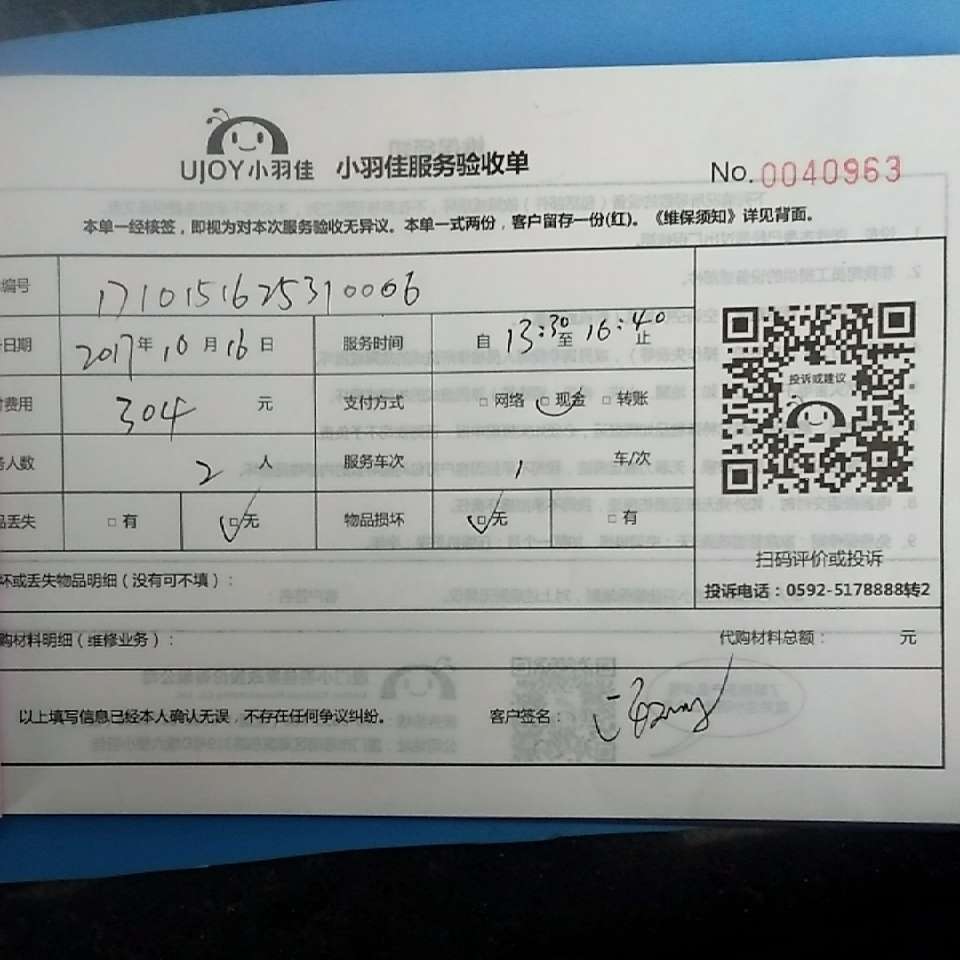 UJOY小羽佳 小羽佳服务验收单 No.0040963
本单一经核签，即视为对本次服务验收无异议。本单一式两份，客户留存一份(红)。《维保须知》详见背面。
编号 1710151625310006
日期 2017年10月16日 服务时间 自13:30至16:40止
费用 304 元 支付方式 □网络 □现金 □转账
人数 2 人 服务车次 1 车/次
品丢失 □有 □无 物品损坏 □无 □有
投诉或建议
扫码评价或投诉
坏或丢失物品明细（没有可不填）：
投诉电话：0592-5178888转2
购材料明细（维修业务）： 代购材料总额： 元
以上填写信息已经本人确认无误，不存在任何争议纠纷。 客户签名：